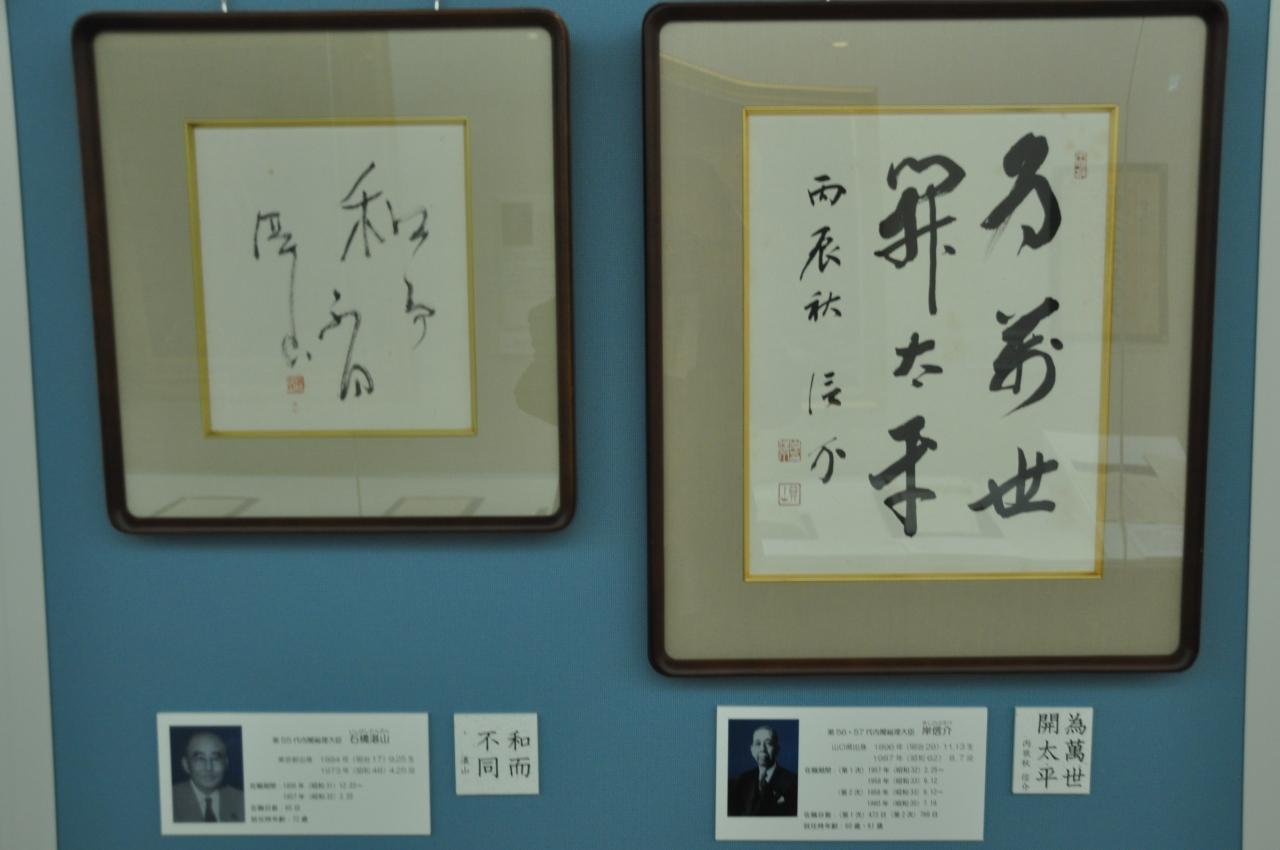 和而
不同
湛山
為萬世
開太平
丙辰秋 信介
第55代内閣総理大臣 石橋湛山
いしばしたんざん
東京都出身 1884年(明治17)9.25生
1973年(昭和48)4.25没
在職期間:1956年(昭和31)12.23〜
1957年(昭和32)2.25
在職日数:65日
就任時年齢:72歳
和而
不同
湛山
きしのぶすけ
第56・57代内閣総理大臣 岸信介
山口県出身 1896年(明治29)11.13生
1987年(昭和62)8.7没
在職期間:(第1次)1957年(昭和32)2.25〜
1958年(昭和33)6.12
(第2次)1958年(昭和33)6.12〜
1960年(昭和35)7.19
在職日数:(第1次)473日(第2次)769日
就任時年齢:60歳・61歳
為萬世
開太平
丙辰秋 信介